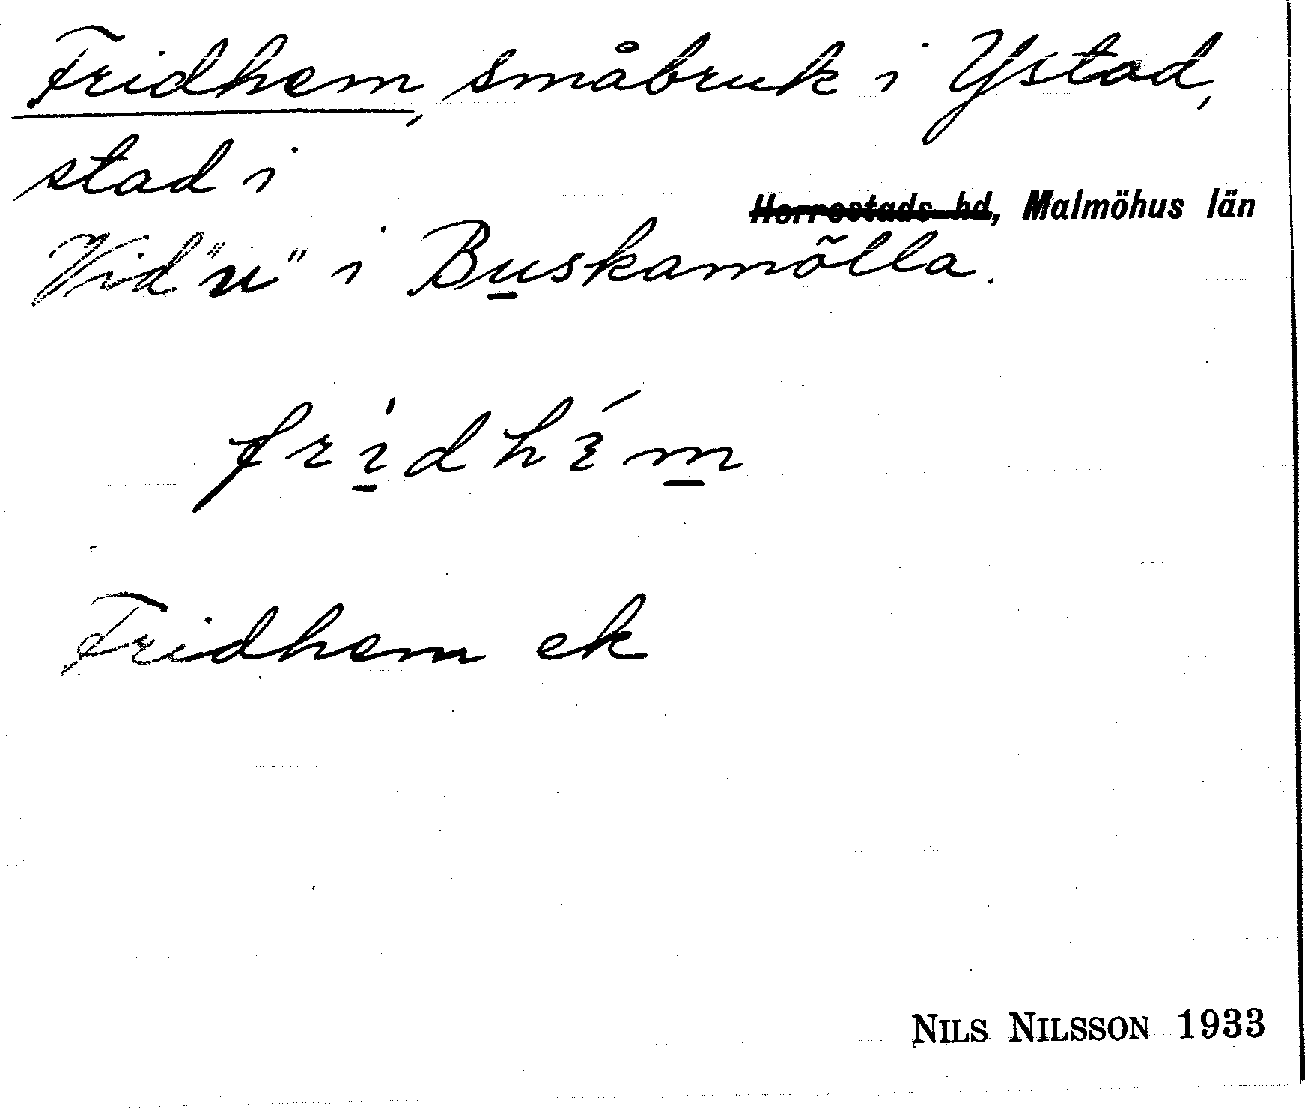 Fridhem, småbruk i Ystad,
stad i
Herrestads hd, Malmöhus län
Vid "u" i Buskamölla.
Fridhem ek
NILS NILSSON 1933